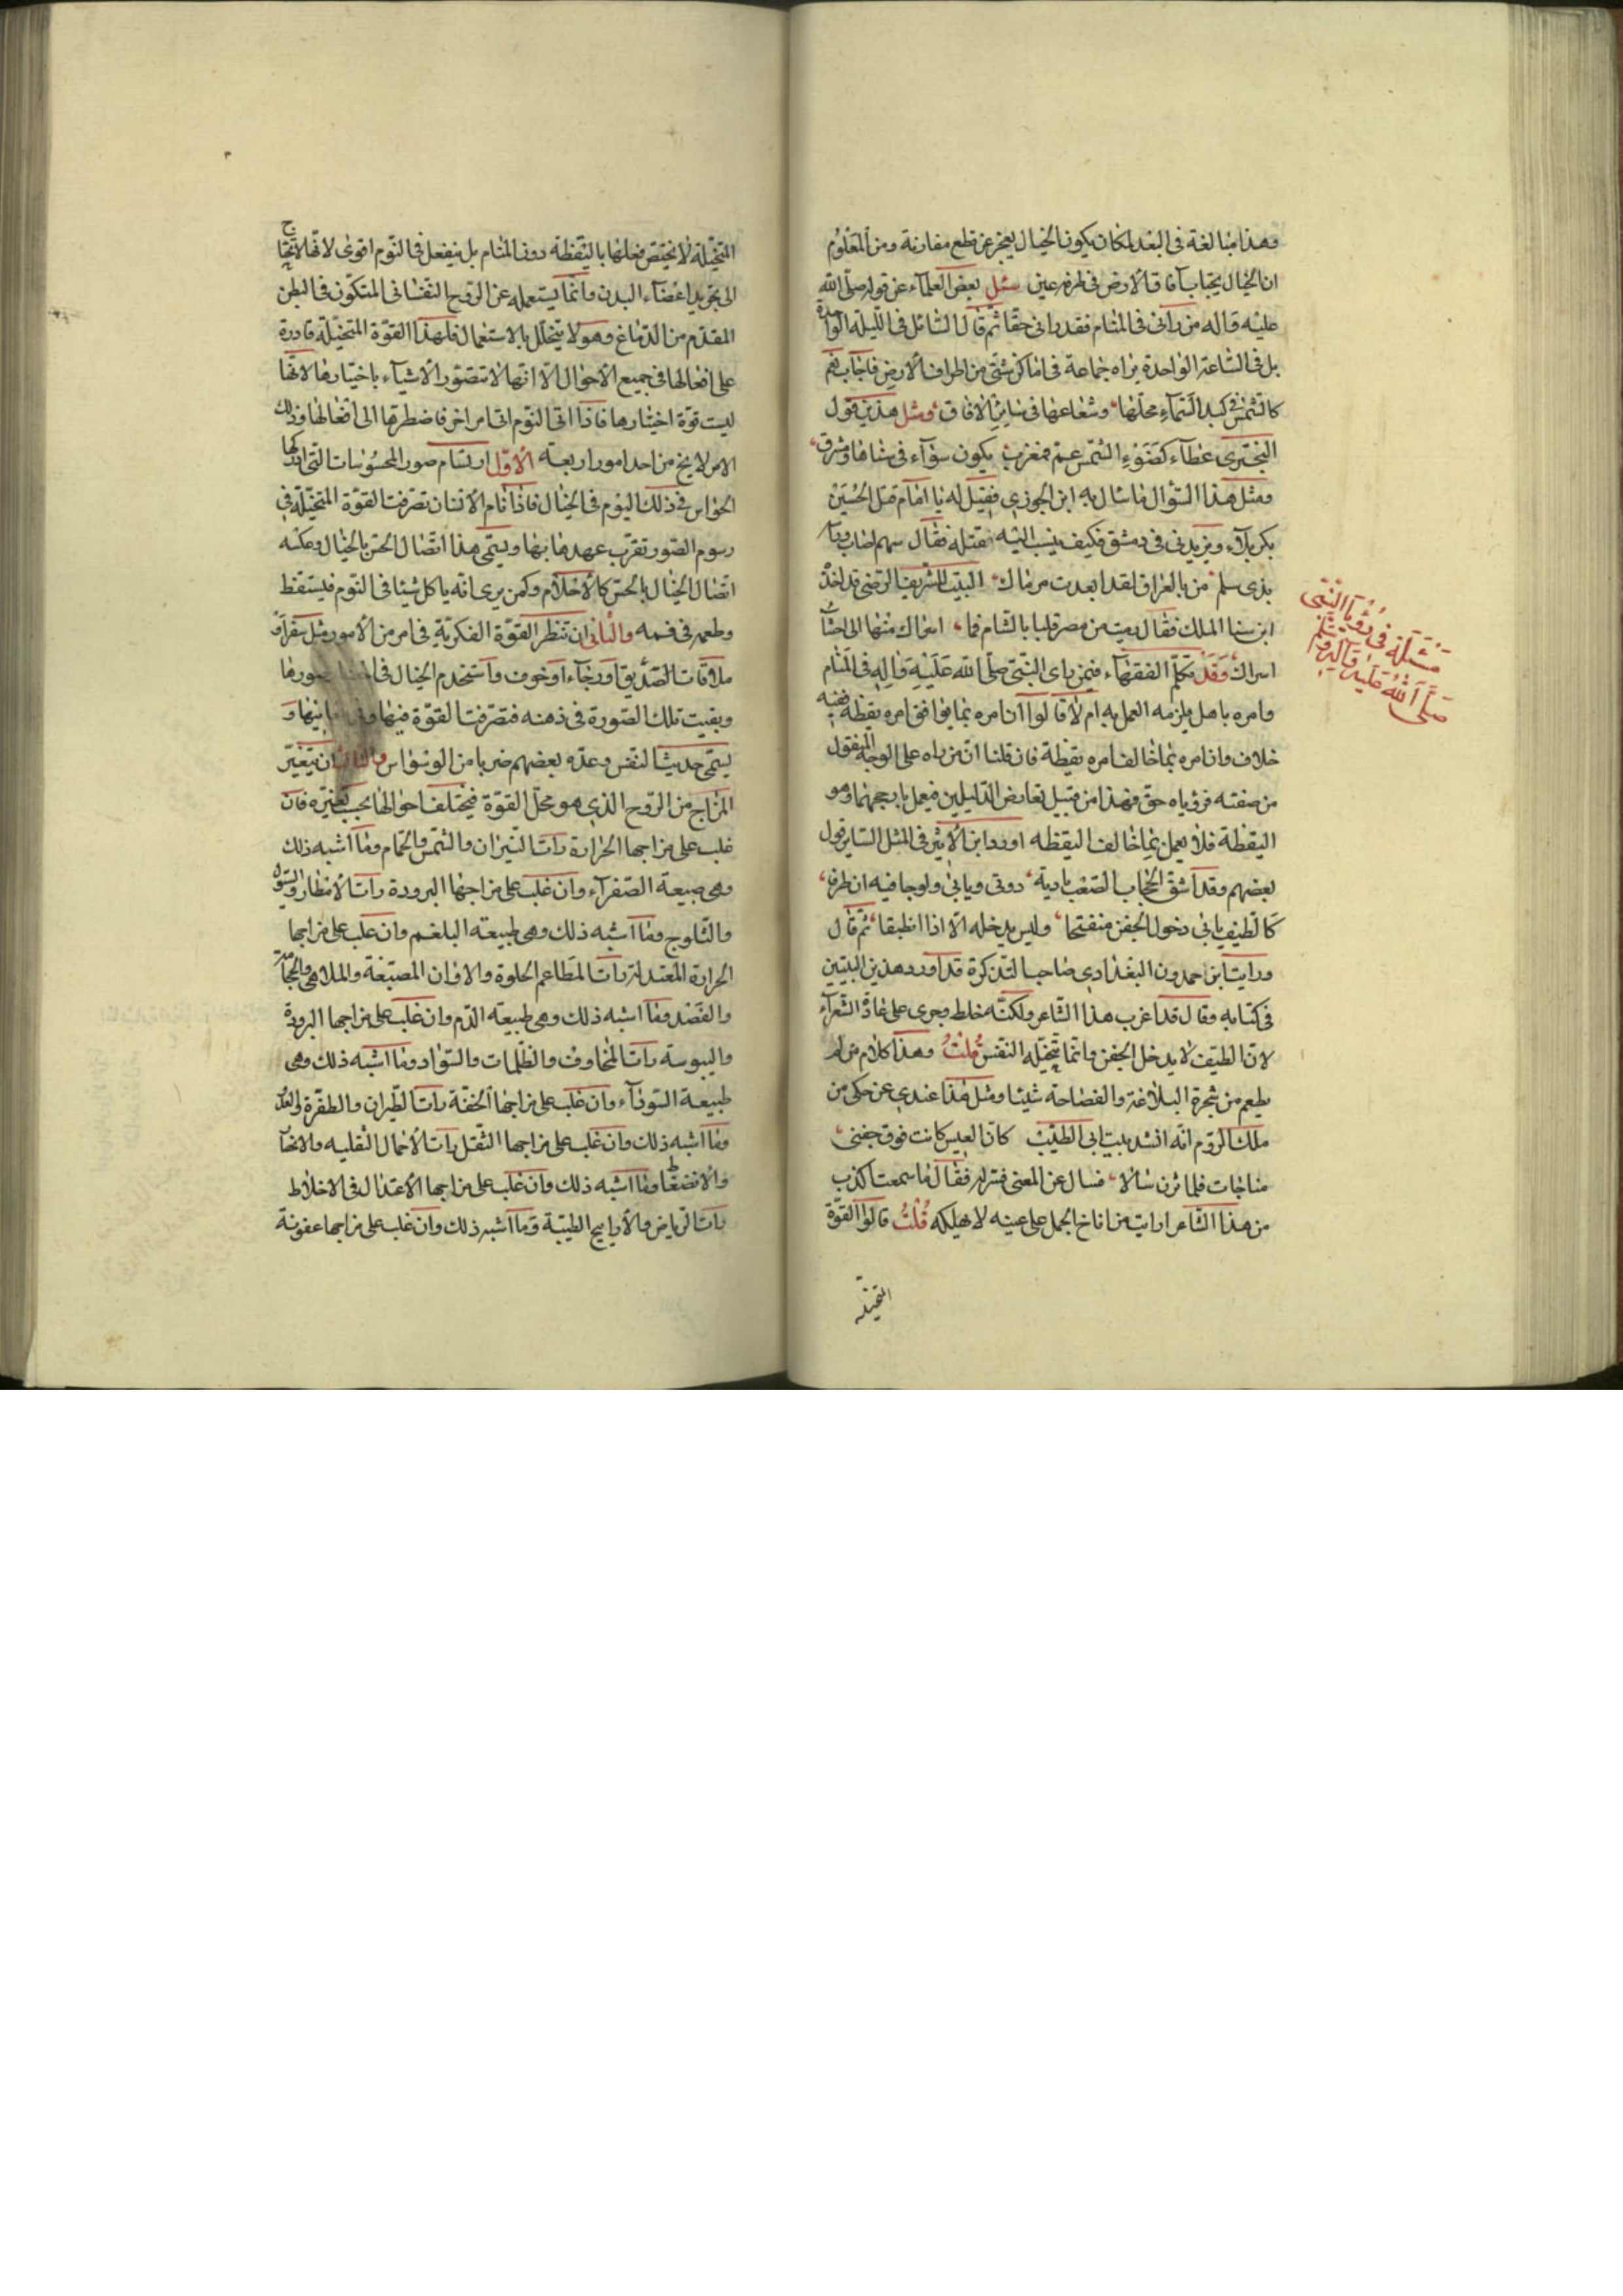 وهذا مبالغة في البعد لمكان يكون الخيال يعجز عن قطع مفازته ومن المعلوم
ان الخيال يجتاب آفاق الارض في طرفة عين سئل بعض العلماء عن قوله صلى الله
عليه واله من رانى في المنام فقد رانى حقا ثم قال السائل في الليلة الواحدة
بل في الساعة الواحدة يراه جماعة في اماكن شتى من اطراف الارض فاجابهم
كالشمس في كبد السماء محلها وشعاعها في ساير الافاق ومثل هذين قول
البحترى عطاء كضوء الشمس عم فمغرب يكون سواء في سناها ومشرق
ومثل هذا السؤال ما سال به ابن الجوزى فقيل له يا امام قتل الحسين
بكربلاء ويزيد في دمشق فكيف ينسب اليه قتله فقال سهم اصاب وراميه
بذى سلم من بالعراق لقد ابعدت مرماك البيت للشريف الرضى قد اخذه
ابن سنا الملك فقال رميت من مصر قلبا بالشام فما اسراك منها الى احشاء
اسراك وقد تكلم الفقهاء فيمن راى النبى صلى الله عليه واله في المنام
وامره بامر هل يلزمه العمل به ام لا قالوا ان امره بما يوافق امره يقظة ففيه
خلاف وان امره بما خالف امره يقظة فان قلنا ان من راه على الوجه المنقول
من صفته فرؤياه حق فهذا من قبيل تعارض الدليلين فيعمل بارجحهما وهو
اليقظة فلا يعمل بما خالف اليقظه اورد ابن الاثير في المثل الساير قول
بعضهم وقد اشق الحجاب الصعب بادية دونى ويابى ولوجا فيه ان طرقا
كالطيف يابى دخول الجفن منفتحا وليس يدخله الا اذا انطبقا ثم قال
ورايت ابن حمدون البغدادى صاحب التذكرة قد اورد هذين البيتين
في كتابه وقال قد اغرب هذا الشاعر ولكنه خلط وجرى على عادة الشعراء
لان الطيف لا يدخل الجفن وانما تتخيله النفس قلت وهذا كلام من لم
يطعم من شجرة البلاغة والفصاحة شيئا ومثل هذا عندى عن حكى من
ملك الروم انه انشد بيت ابى الطيب كان العيس كانت فوق جفنى
مناخات فلما ثرن سالا فسال عن المعنى ففسر له فقال ما سمعت اكذب
من هذا الشاعر ارايت من اناخ الجمل على عينه لا يهلكه قلت قالوا القوة
المتخيلة
مسئلة في رؤيا النبى
صلى الله عليه واله وسلم
المتخيلة لا يختص فعلها باليقظة دون المنام بل يفعل في النوم اقوى لانها لا تحتاج
الى تحريك اعضاء البدن وانما يستعمله عن الروح النفسانى المتكون في البطن
المقدم من الدماغ وهو لا يتحلل بالاستعمال فلهذا القوة المتخيلة قادرة
على افعالها في جميع الاحوال الا انها لا تتصور الاشياء باختيارها لانها
ليست قوة اختيارها فاذا اتى النوم اتى امر اخر فاضطرها الى افعالها وذلك
الامر لا يخ من احد امور اربعة الاول ارتسام صور المحسوسات التى ادركها
الحواس في ذلك اليوم في الخيال فاذا نام الانسان تصرفت القوة المتخيلة في
رسوم الصور تقرب عهدها بها ويسمى هذا اتصال الحس بالخيال وعكسه
اتصال الخيال بالحس كالاحلام وكمن يرى انه ياكل شيئا في النوم فيستقظ
وطعمه في فمه والثانى ان تنظر القوة الفكرية في امر من الامور مثل سفر او
ملاقات الصديق او رجاء او خوف واستخدم الخيال في صورها
وبقيت تلك الصورة في ذهنه فتصرفت القوة فيها و
يسمى حديث النفس وعده بعضهم ضربا من الوسواس والثالث ان يتغير
المزاج من الروح الذى هو محل القوة فيختلف احوالها بحسب تغيره فان
غلب على مزاجها الحرارة رات النيران والشمس والحمام وما اشبه ذلك
وهى طبيعة الصفراء وان غلب على مزاجها البرودة رات الامطار والسيول
والثلوج وما اشبه ذلك وهى طبيعة البلغم وان غلب على مزاجها
الحرارة المعتدلة رات المطاعم الحلوة والالوان المصبغة والملاهى والحجامة
والفصد وما اشبه ذلك وهى طبيعة الدم وان غلب على مزاجها البرودة
واليبوسة رات المخاوف والظلمات والسواد وما اشبه ذلك وهى
طبيعة السوداء وان غلب على مزاجها الخفة رات الطيران والطفرة والعدو
وما اشبه ذلك وان غلب على مزاجها الثقل رات الاحمال الثقلية والانحاء
والانضغاط وما اشبه ذلك وان غلب على مزاجها الاعتدال في الاخلاط
رات الرياض والاراييح الطيبة وما اشبه ذلك وان غلب على مزاجها عفونة